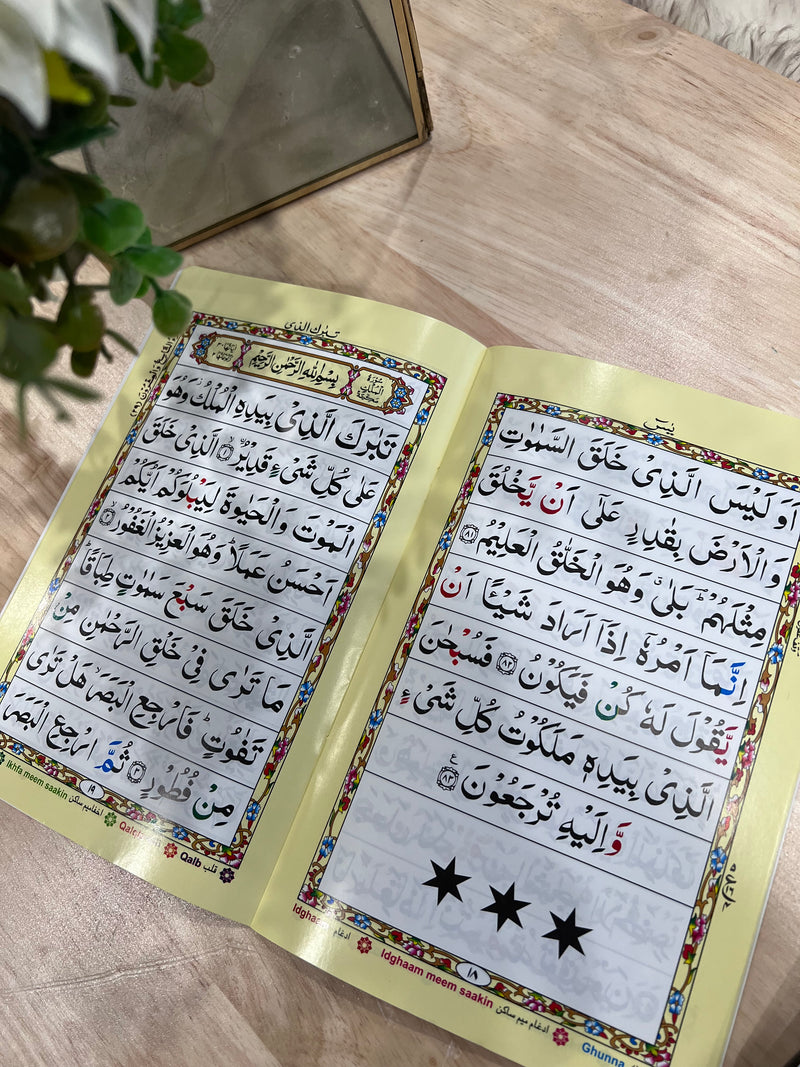 يٰسٓ
اَوَلَيْسَ الَّذِىْ خَلَقَ السَّمٰوٰتِ
وَالْاَرْضَ بِقٰدِرٍ عَلٰٓى اَنْ يَّخْلُقَ
مِثْلَهُمْ ؕ بَلٰى ۗ وَهُوَ الْخَلّٰقُ الْعَلِيْمُ ﴿۸۱﴾
اِنَّمَاۤ اَمْرُهٗۤ اِذَاۤ اَرَادَ شَيْـًٔا اَنْ
يَّقُوْلَ لَهٗ كُنْ فَيَكُوْنُ ﴿۸۲﴾ فَسُبْحٰنَ
الَّذِىْ بِيَدِهٖ مَلَكُوْتُ كُلِّ شَىْءٍ
وَّاِلَيْهِ تُرْجَعُوْنَ ﴿۸۳﴾
۱۸
ادغام
Idghaam meem saakin ادغام ميم ساكن
Ghunna
تبٰرك الذى
بِسْمِ اللهِ الرَّحْمٰنِ الرَّحِيْمِ
تَبٰرَكَ الَّذِىْ بِيَدِهِ الْمُلْكُ وَهُوَ
عَلٰى كُلِّ شَىْءٍ قَدِيْرُ ۙ﴿۱﴾ الَّذِىْ خَلَقَ
الْمَوْتَ وَالْحَيٰوةَ لِيَبْلُوَكُمْ اَيُّكُمْ
اَحْسَنُ عَمَلًا ؕ وَهُوَ الْعَزِيْزُ الْغَفُوْرُ ۙ﴿۲﴾
الَّذِىْ خَلَقَ سَبْعَ سَمٰوٰتٍ طِبَاقًا ؕ
مَا تَرٰى فِىْ خَلْقِ الرَّحْمٰنِ مِنْ
تَفٰوُتٍ ؕ فَارْجِعِ الْبَصَرَ ۙ هَلْ تَرٰى
مِنْ فُطُوْرٍ ﴿۳﴾ ثُمَّ ارْجِعِ الْبَصَرَ
۱۹
Ikhfa meem saakin اخفا ميم ساكن
Qalb قلب